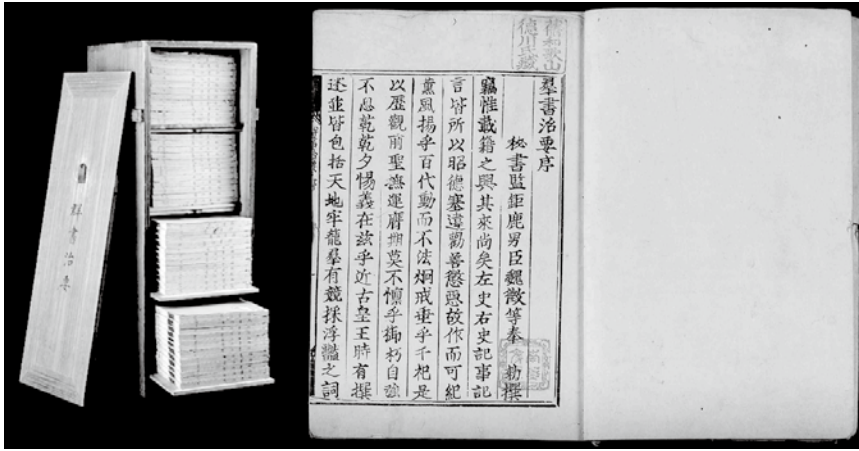 群書治要
舊和歌山
德川氏藏
羣書治要序
秘書監鉅鹿男臣魏徵等奉　勅撰
竊惟載籍之興其來尚矣左史右史記事記
言皆所以昭德塞違勸善懲惡故作而可紀
薰風揚乎百代動而不法炯戒垂乎千祀是
以歷觀前聖撫運膺期莫不懍乎御朽自強
不息乾乾夕惕義在茲乎近古皇王時有撰
述並皆包括天地牢籠羣有競採浮豔之詞